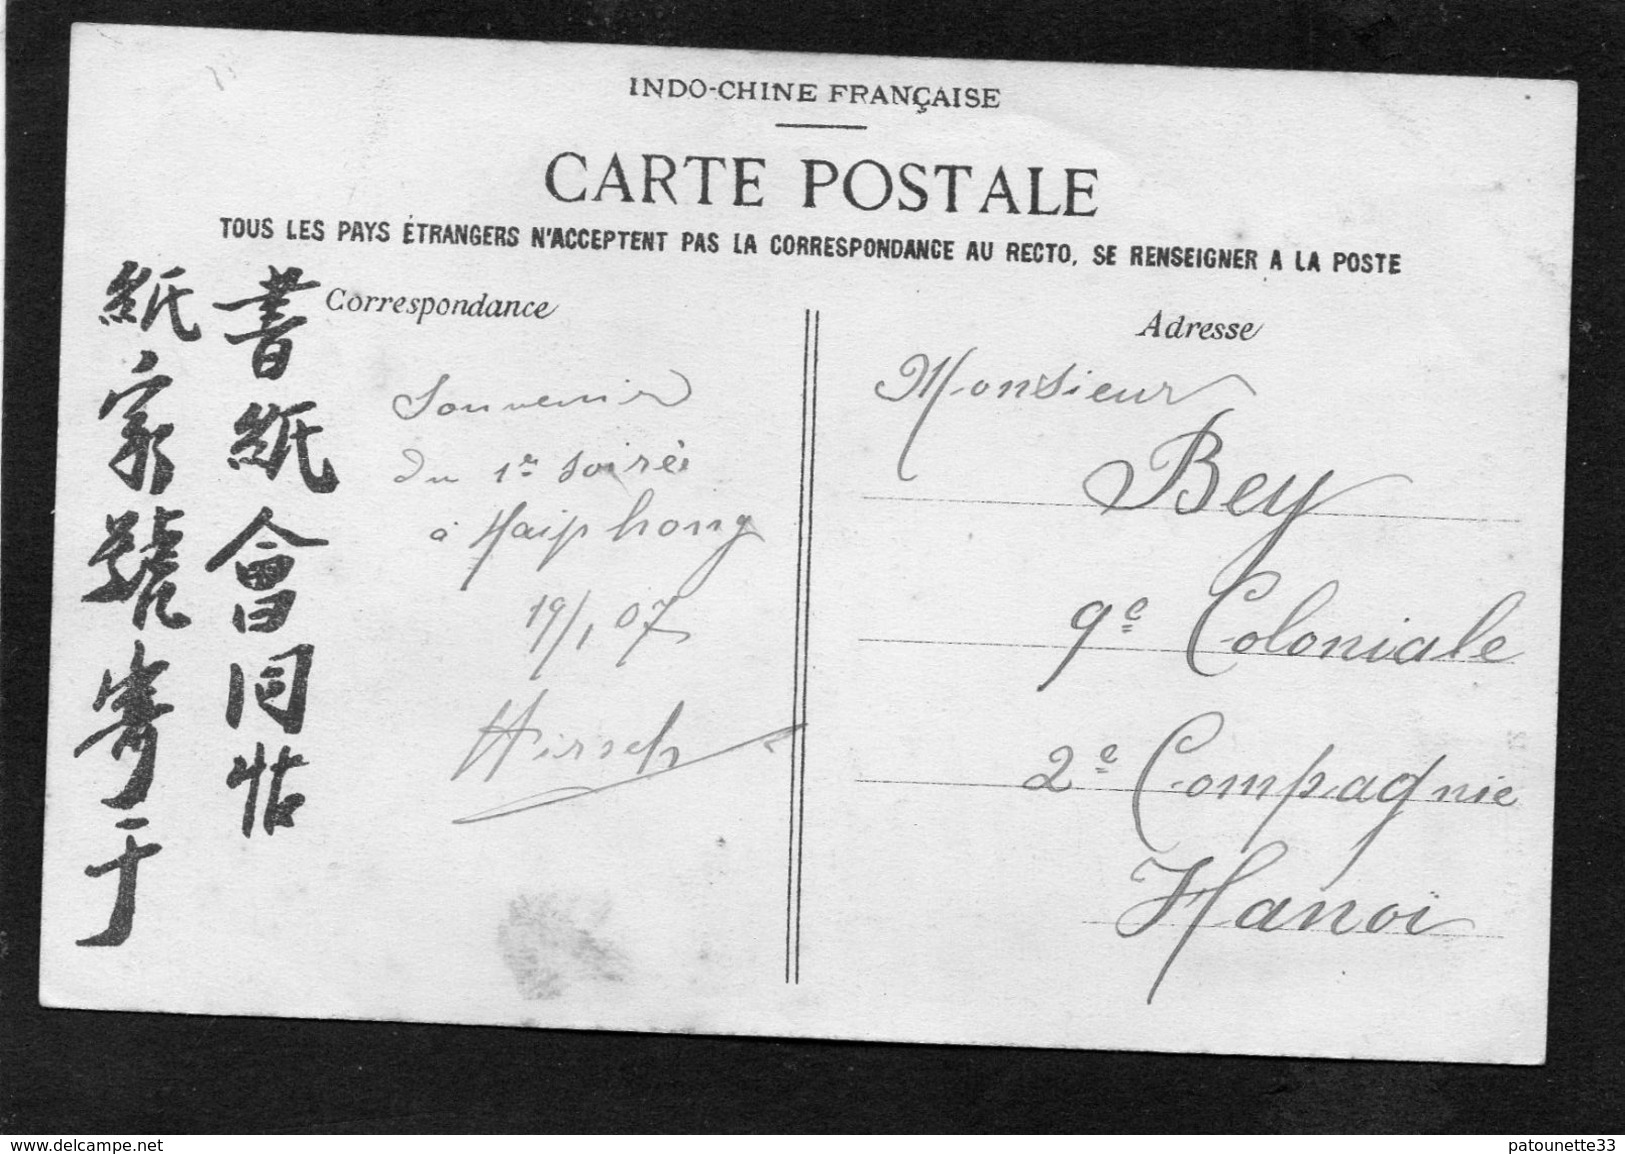 INDO-CHINE FRANÇAISE
CARTE POSTALE
TOUS LES PAYS ÉTRANGERS N'ACCEPTENT PAS LA CORRESPONDANCE AU RECTO, SE RENSEIGNER A LA POSTE
書紙會同帖
紙家號寄于
Correspondance
Souvenir
du 1er soirée
à Haiphong
19/1 07
Hirsch
Adresse
Monsieur
Bey
9e Coloniale
2e Compagnie
Hanoi
www.delcampe.net
patounette33